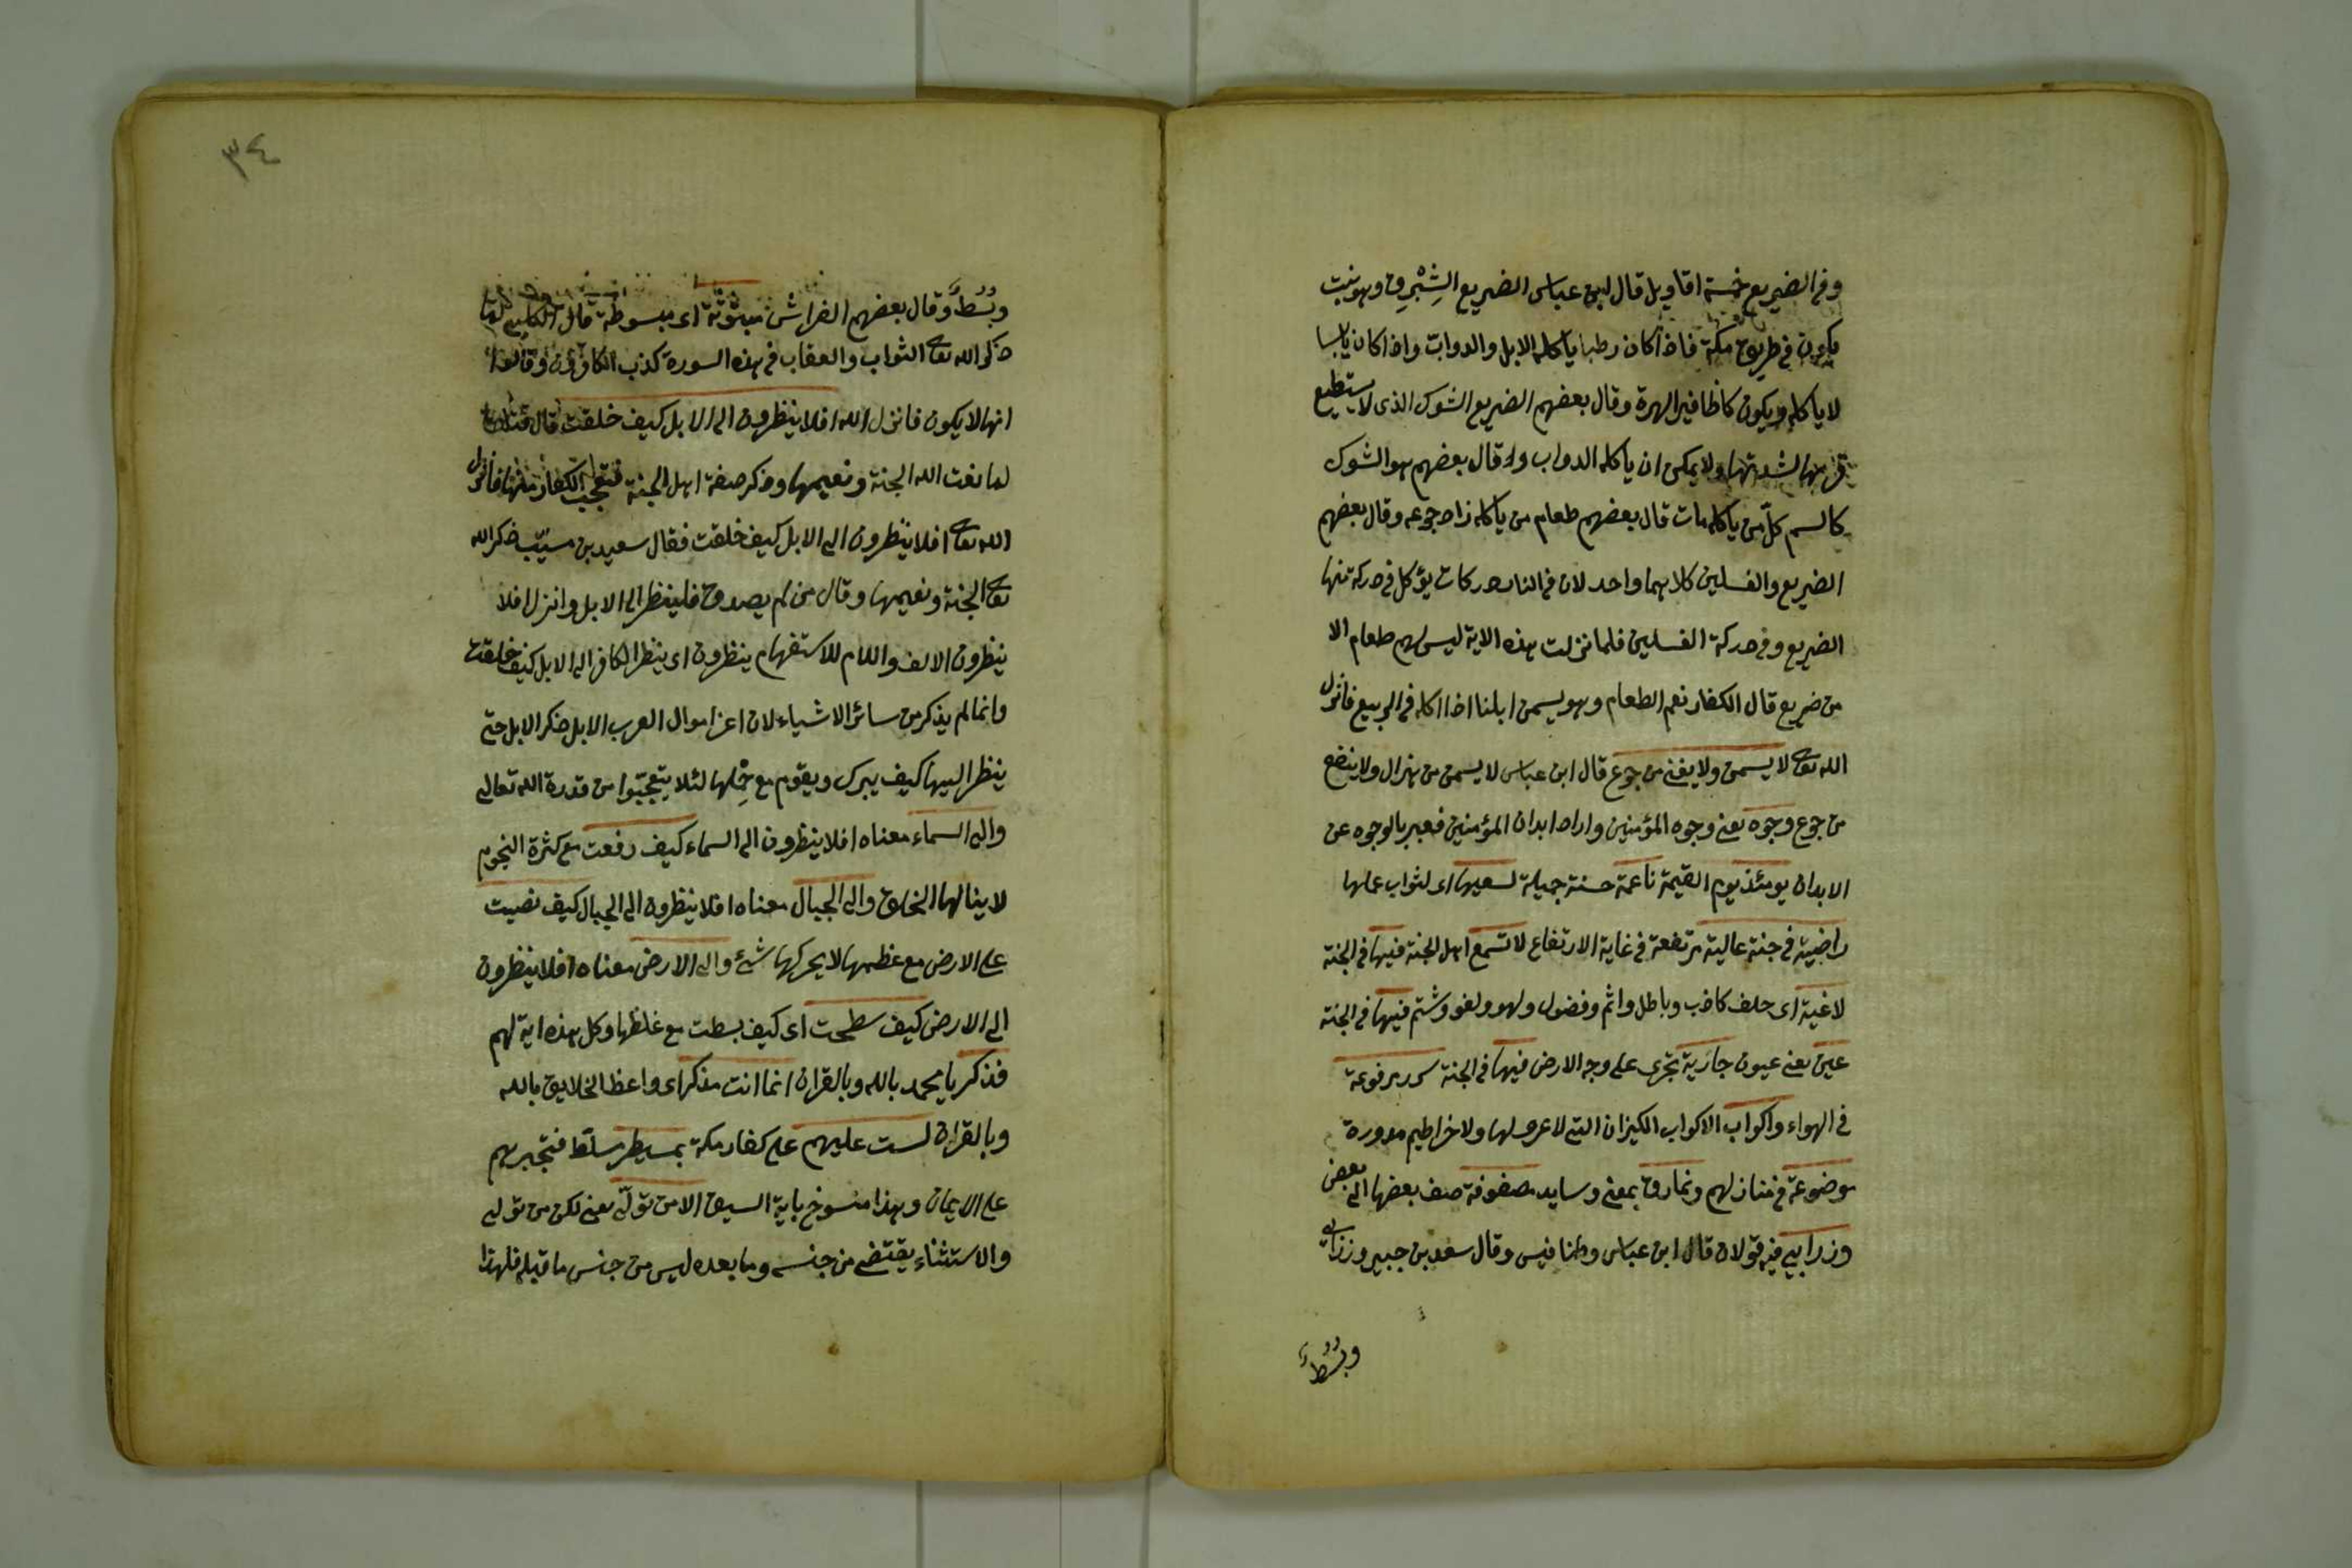 وفى الضريع خمسة اقاويل قال ابن عباس الضريع الشِبْرِق وهو نبت
يكون فى طريق مكة فاذا كان رطبا ياكله الابل والدوابّ واذا كان يابسا
لا ياكله ويكون كاظافير الهرة وقال بعضهم الضريع الشوك الذى لا يستطيع
لشدتها ولا يمكن ان ياكله الدواب وقال بعضهم هو الشوك
كالسم كلّ من ياكله مات قال بعضهم طعام من ياكله زاد جوعه وقال بعضهم
الضريع والغسلين كلاهما واحد لان فى النار دركات يؤكل فى دركة منها
الضريع وفى دركة الغسلين فلما نزلت هذه الاية ليس لهم طعام الا
من ضريع قال الكفار نعم الطعام وهو يسمن ابلنا اذا اكله فى الربيع فانزل
الله تعالى لا يسمن ولا يغنى من جوع قال ابن عباس لا يسمن من هزال ولا ينفع
من جوع وجوه يعنى وجوه المؤمنين واراد ابدان المؤمنين فعبر بالوجوه عن
الابدان يومئذ يوم القيمة ناعمة حسنة جميلة لسعيها اى لثواب عملها
راضية فى جنة عالية مرتفعة فى غاية الارتفاع لا تسمع اهل الجنة فيها فى الجنة
لاغية اى حلف كاذب وباطل واثم وفضول ولهو ولغو وشتم فيها فى الجنة
عين يعنى عيون جارية تجرى على وجه الارض فيها فى الجنة سرر مرفوعة
فى الهواء واكواب الاكواب الكيزان التى لا عرى لها ولا خراطيم مدورة
موضوعة فى منازلهم ونمارق بمعنى وسايد مصفوفة صف بعضها الى بعض
وزرابى فيه قولان قال ابن عباس وطنافيس وقال سعد بن جبير وزرابى
وبُسُطٌ
٣٤
وبُسُطٌ وقال بعضهم الفراش مبثوثة اى مبسوطة قال الكلبى لما
ذكر الله تعالى الثواب والعقاب فى هذه السورة كذب الكافرون وقالوا
انها لا يكون فانزل الله افلا ينظرون الى الابل كيف خلقت قال قتادة
لما نعت الله الجنة ونعيمها وذكر صفة اهل الجنة فتعجب الكفار منها فانزل
الله تعالى افلا ينظرون الى الابل كيف خلقت فقال سعيد بن مسيّب ذكر الله
تعالى الجنة ونعيمها وقال من لم يصدق فلينظر الى الابل وانزل افلا
ينظرون الالف واللام للاستفهام ينظرون اى ينظر الكافر الى الابل كيف خلقت
وانما لم يذكر من سائر الاشياء لان اعز اموال العرب الابل ذكر الابل حتى
ينظر اليها كيف يبرك ويقوم مع حِمْلها لئلا يتعجّبوا من قدرة الله تعالى
والى السماء معناه افلا ينظرون الى السماء كيف رفعت مع كثرة النجوم
لا ينالها الخلق والى الجبال معناه افلا ينظرون الى الجبال كيف نصبت
على الارض مع عظمها لا يحركها شىء والى الارض معناه افلا ينظرون
الى الارض كيف سطحت اى كيف بسطت مع غلظها وكل هذه اية لهم
فذكر يا محمد بالله وبالقران انما انت مذكر اى واعظ الخلايق بالله
وبالقران لست عليهم على كفار مكة بمسيطر مسلّط فتجبرهم
على الايمان وهذا منسوخ باية السيف الا من تولّى يعنى لكن من تولى
والاستثناء يقتضى من جنسه وما بعده ليس من جنس ما قبله فلهذا